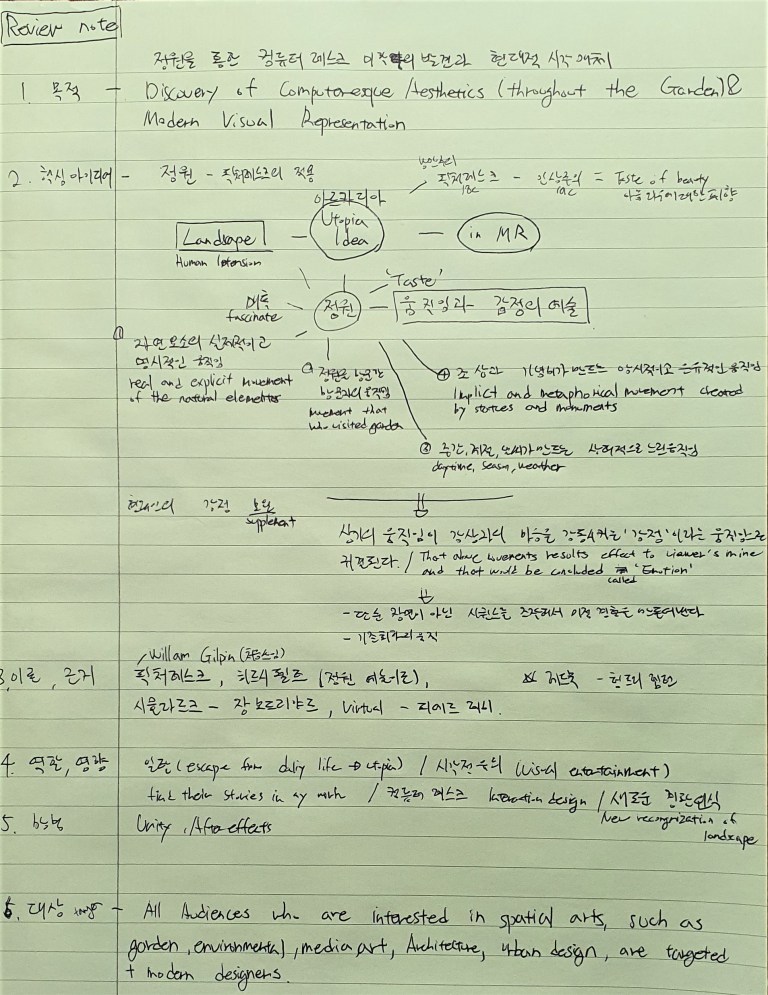 Review note
정원을 통한 컴퓨터레스크 미학의 발견과 현대적 시각 매체
1. 목적 - Discovery of Computeresque Aesthetics (throughout the Garden) &
Modern Visual Representation
2. 핵심아이디어 - 정원 - 픽처레스크의 적용
픽처레스크 - 인상주의 = Taste of beauty
18C 19C
아르카디아
Landscape - Utopia Idea - in MR
Human Intension
'Taste'
매혹 정원 - 움직임과 감정의 예술
fascinate
① 자연요소의 실제적이고
명시적인 움직임
real and explicit movement
of the natural elements
정원을 방문한
방문자의 움직임
movement that
who visited garden
④ 조상과 기념비가 만드는 암시적이고 은유적인 움직임
Implicit and metaphorical movement created
by statues and monuments
③ 시간, 계절, 날씨가 만드는 느린 움직임
daytime, season, weather
현대인의 감정 보완
supplement
상기의 움직임이 감상자의 마음을 감동시키는 '감정'이라는 움직임으로
귀결된다. / That above movements results effect to viewer's mine
and that would be concluded called 'Emotion'
- 단순 장면이 아닌 시퀀스를 조작해서 만들어낸다
-
/ William Gilpin
3. 이론, 근거 픽처레스크, 히르시펠트 (정원 예술이론),
시뮬라르크 - 장 보드리야르, Virtual - 피에르 레비.
4. 역할, 영향 일탈 (escape from daily life → utopia) / 시각적 유희 (visual entertainment)
find their stories in my work / 컴퓨터레스크 Interaction design / 새로운 풍경인식
New recongrization of
landscape
5. 방법 Unity, After effects
6. 대상 target - All Audiences who are interested in spatial arts, such as
garden, environmental, media art, Architecture, urban design, are targeted
+ modern designers.